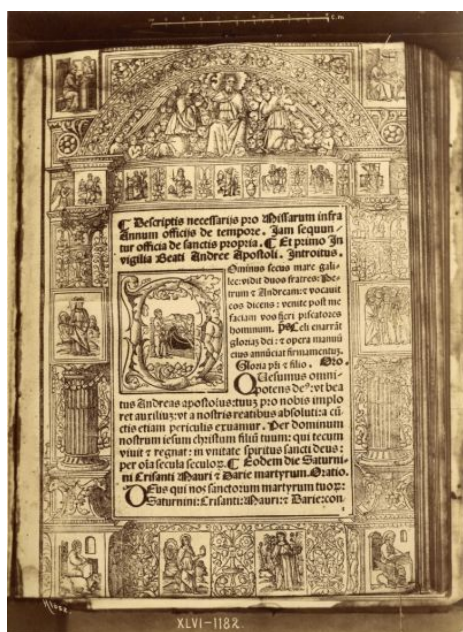 cm
¶ Descriptis necessarijs pro Missarum infra
Annum officijs de tempore. Jam sequun-
tur officia de sanctis propria. ¶ Et primo In
vigilia Beati Andree Apostoli. Introitus.
Dominus secus mare gali-
lee: vidit duos fratres: Pe-
trum ⁊ Andream: ⁊ vocauit
eos dicens: venite post me
faciam vos fieri piscatores
hominum. p̄s Celi enarrāt
gloriaꝫ dei: ⁊ opera manuū
eius annūciat firmamentuꝫ.
Gloria pr̄i ⁊ filio. Oro.
QUesumus omni-
potens de⁹: vt bea
tus Andreas apostolus: tuuꝫ pro nobis implo
ret auxiliuꝫ: vt a nostris reatibus absoluti: a cū
ctis etiam periculis exuamur. Per dominum
nostrum iesum christum filiū tuum: qui tecum
viuit ⁊ regnat: in vnitate spiritus sancti deus:
per oīa secula seculoꝝ. ¶ Eodem die Saturni-
ni Crisanti Mauri ⁊ Darie martyrum. Oratio.
DEus qui nos sanctorum martyrum tuoꝝ:
Saturnini: Crisanti: Mauri: ⁊ Darie: con
XLVI-1182.